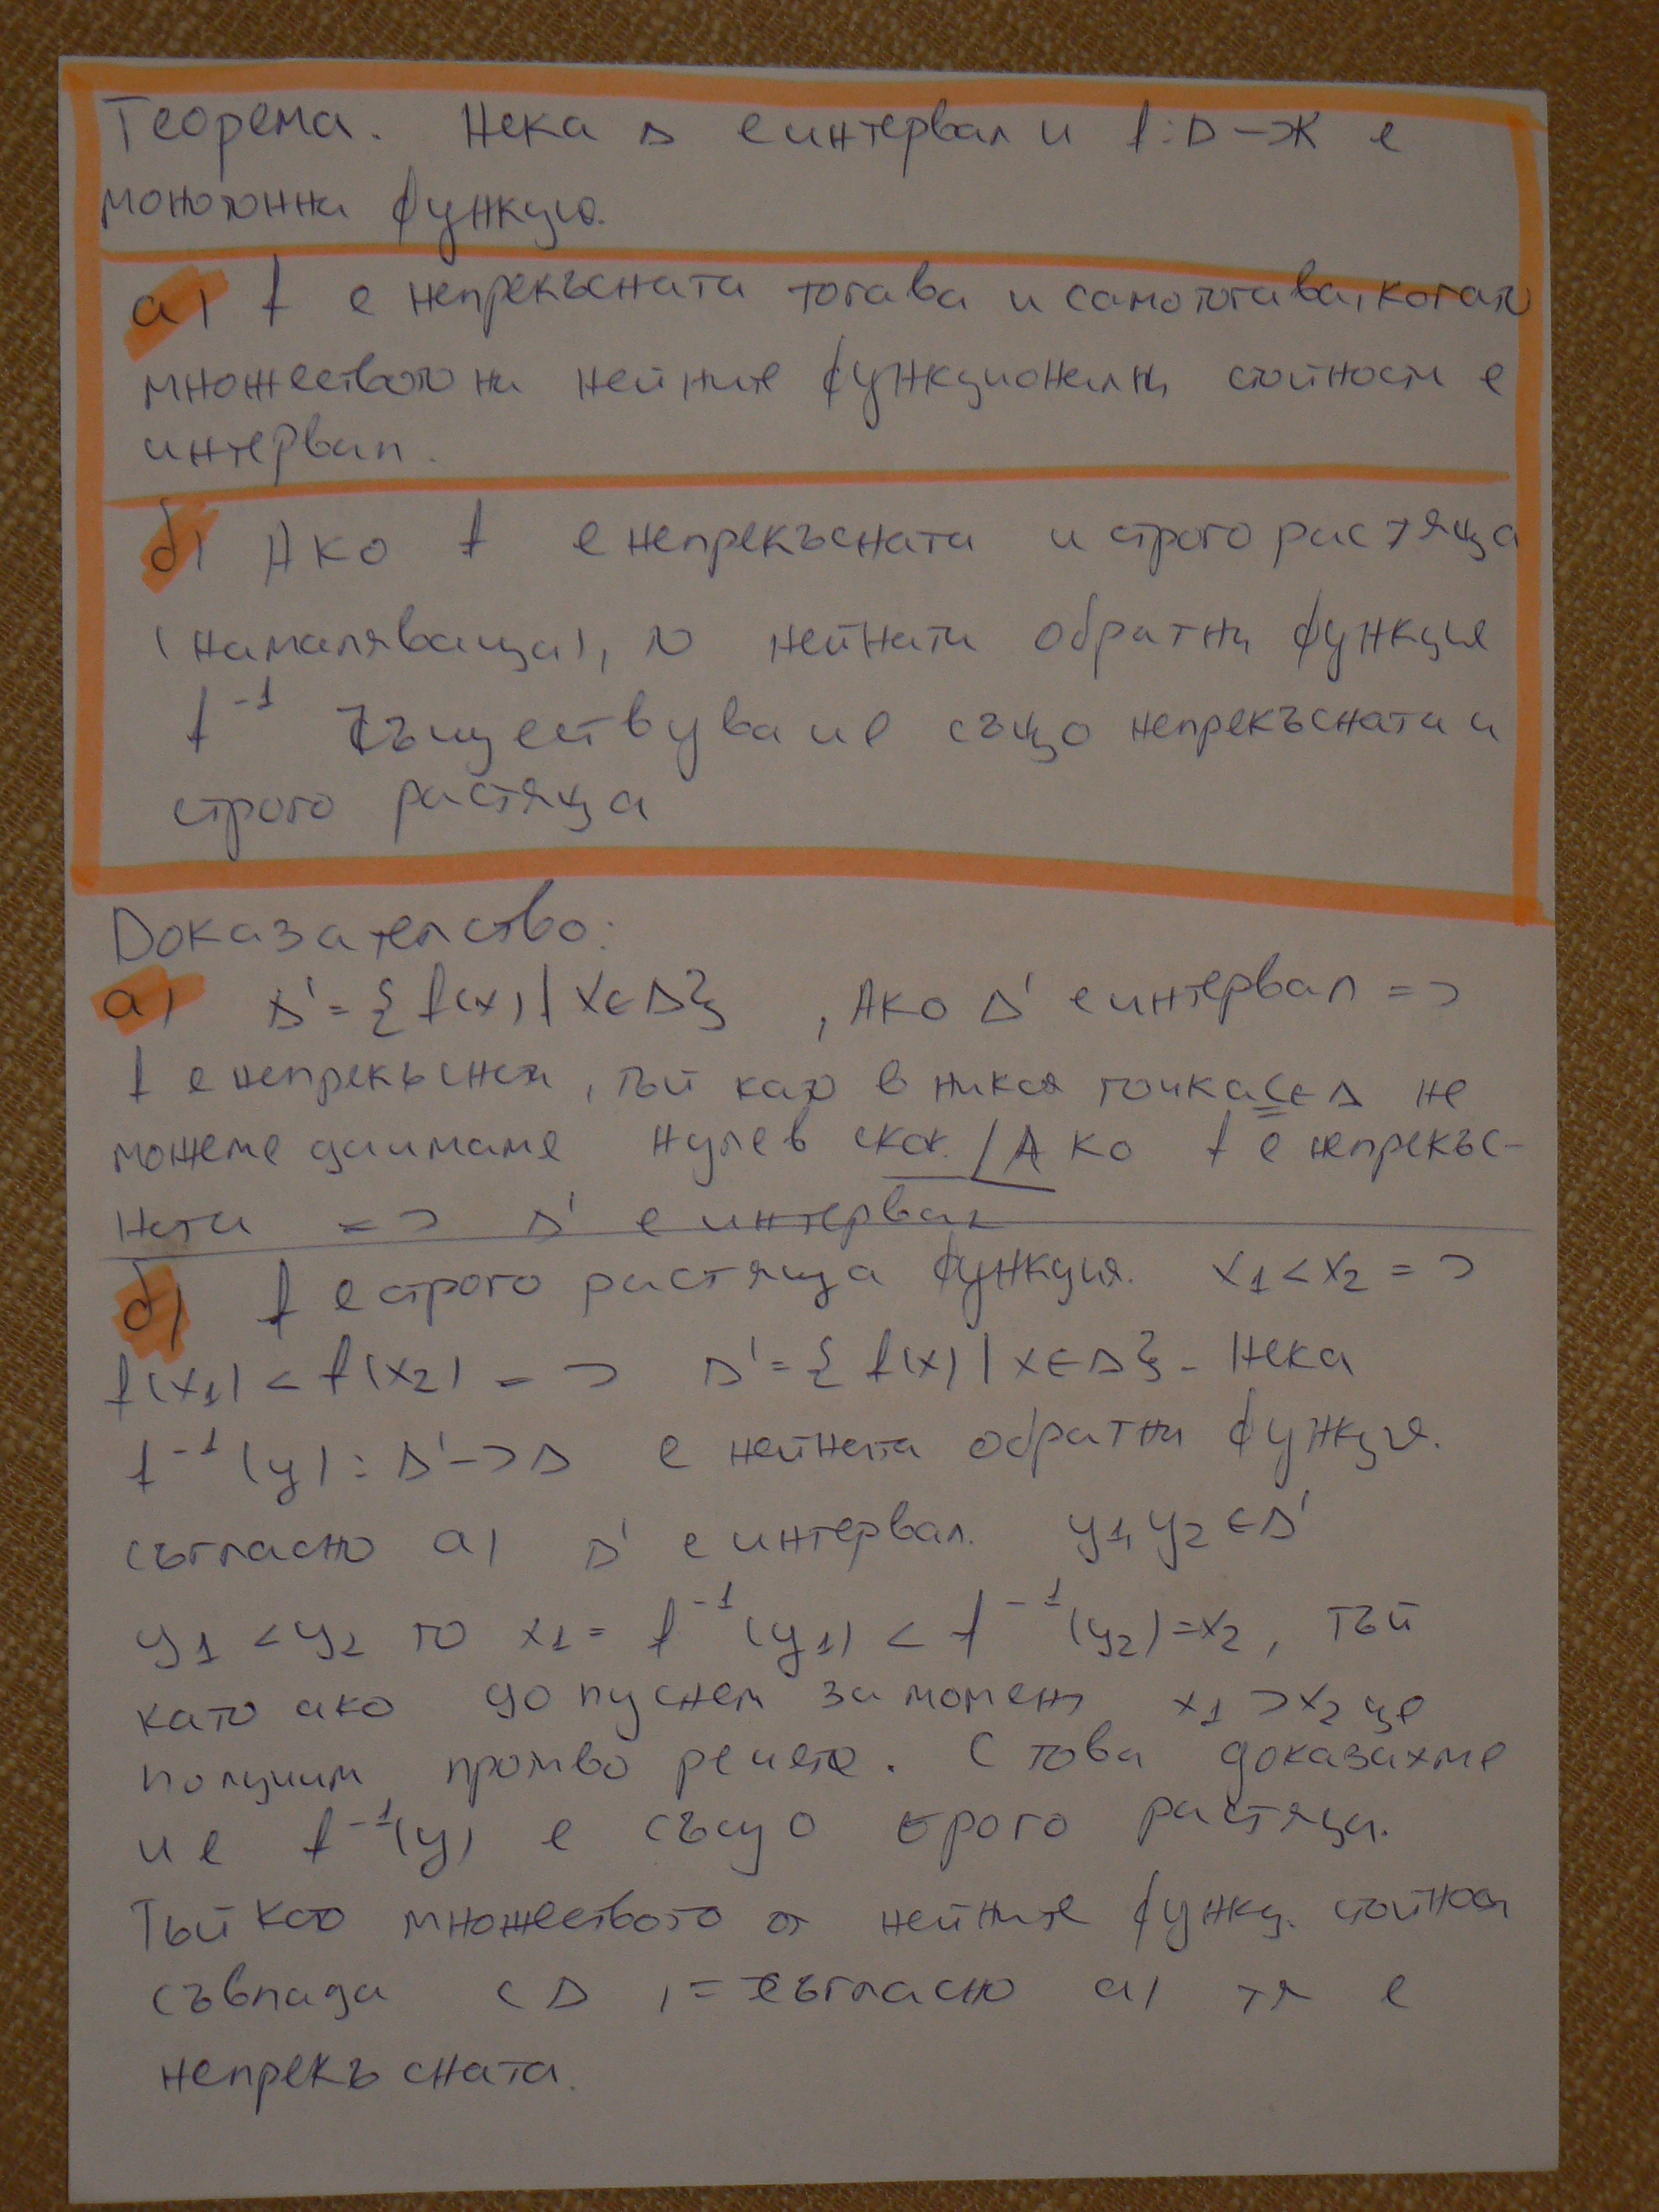 Теорема. Нека Δ е интервал и f: Δ -> Ж е
монотонна функция.
а) f е непрекъсната тогава и само тогава, когато
множеството на нейните функционални стойности е
интервал.
б) Ако f е непрекъсната и строго растяща
(намаляваща), то нейната обратна функция
f⁻¹ съществува и е също непрекъсната и
строго растяща
Доказателство:
а) Δ' = {f(x) | x ∈ Δ}, Ако Δ' е интервал =>
f е непрекъсната, тъй като в никоя точка c ∈ Δ не
можеме да имаме нулев скок. / Ако f е непрекъс-
ната => Δ' е интервал
б) f е строго растяща функция. x₁ < x₂ =>
f(x₁) < f(x₂) => Δ' = {f(x) | x ∈ Δ} - Нека
f⁻¹(y): Δ' -> Δ е нейната обратна функция.
съгласно а) Δ' е интервал. y₁, y₂ ∈ Δ'
y₁ < y₂ то x₁ = f⁻¹(y₁) < f⁻¹(y₂) = x₂, тъй
като ако допуснем за момент x₁ > x₂ ще
получим противоречие. С това доказахме
че f⁻¹(y) е също строго растяща.
Тъй като множеството от нейните функц. стойност
съвпада с Δ, = съгласно а) тя е
непрекъсната.